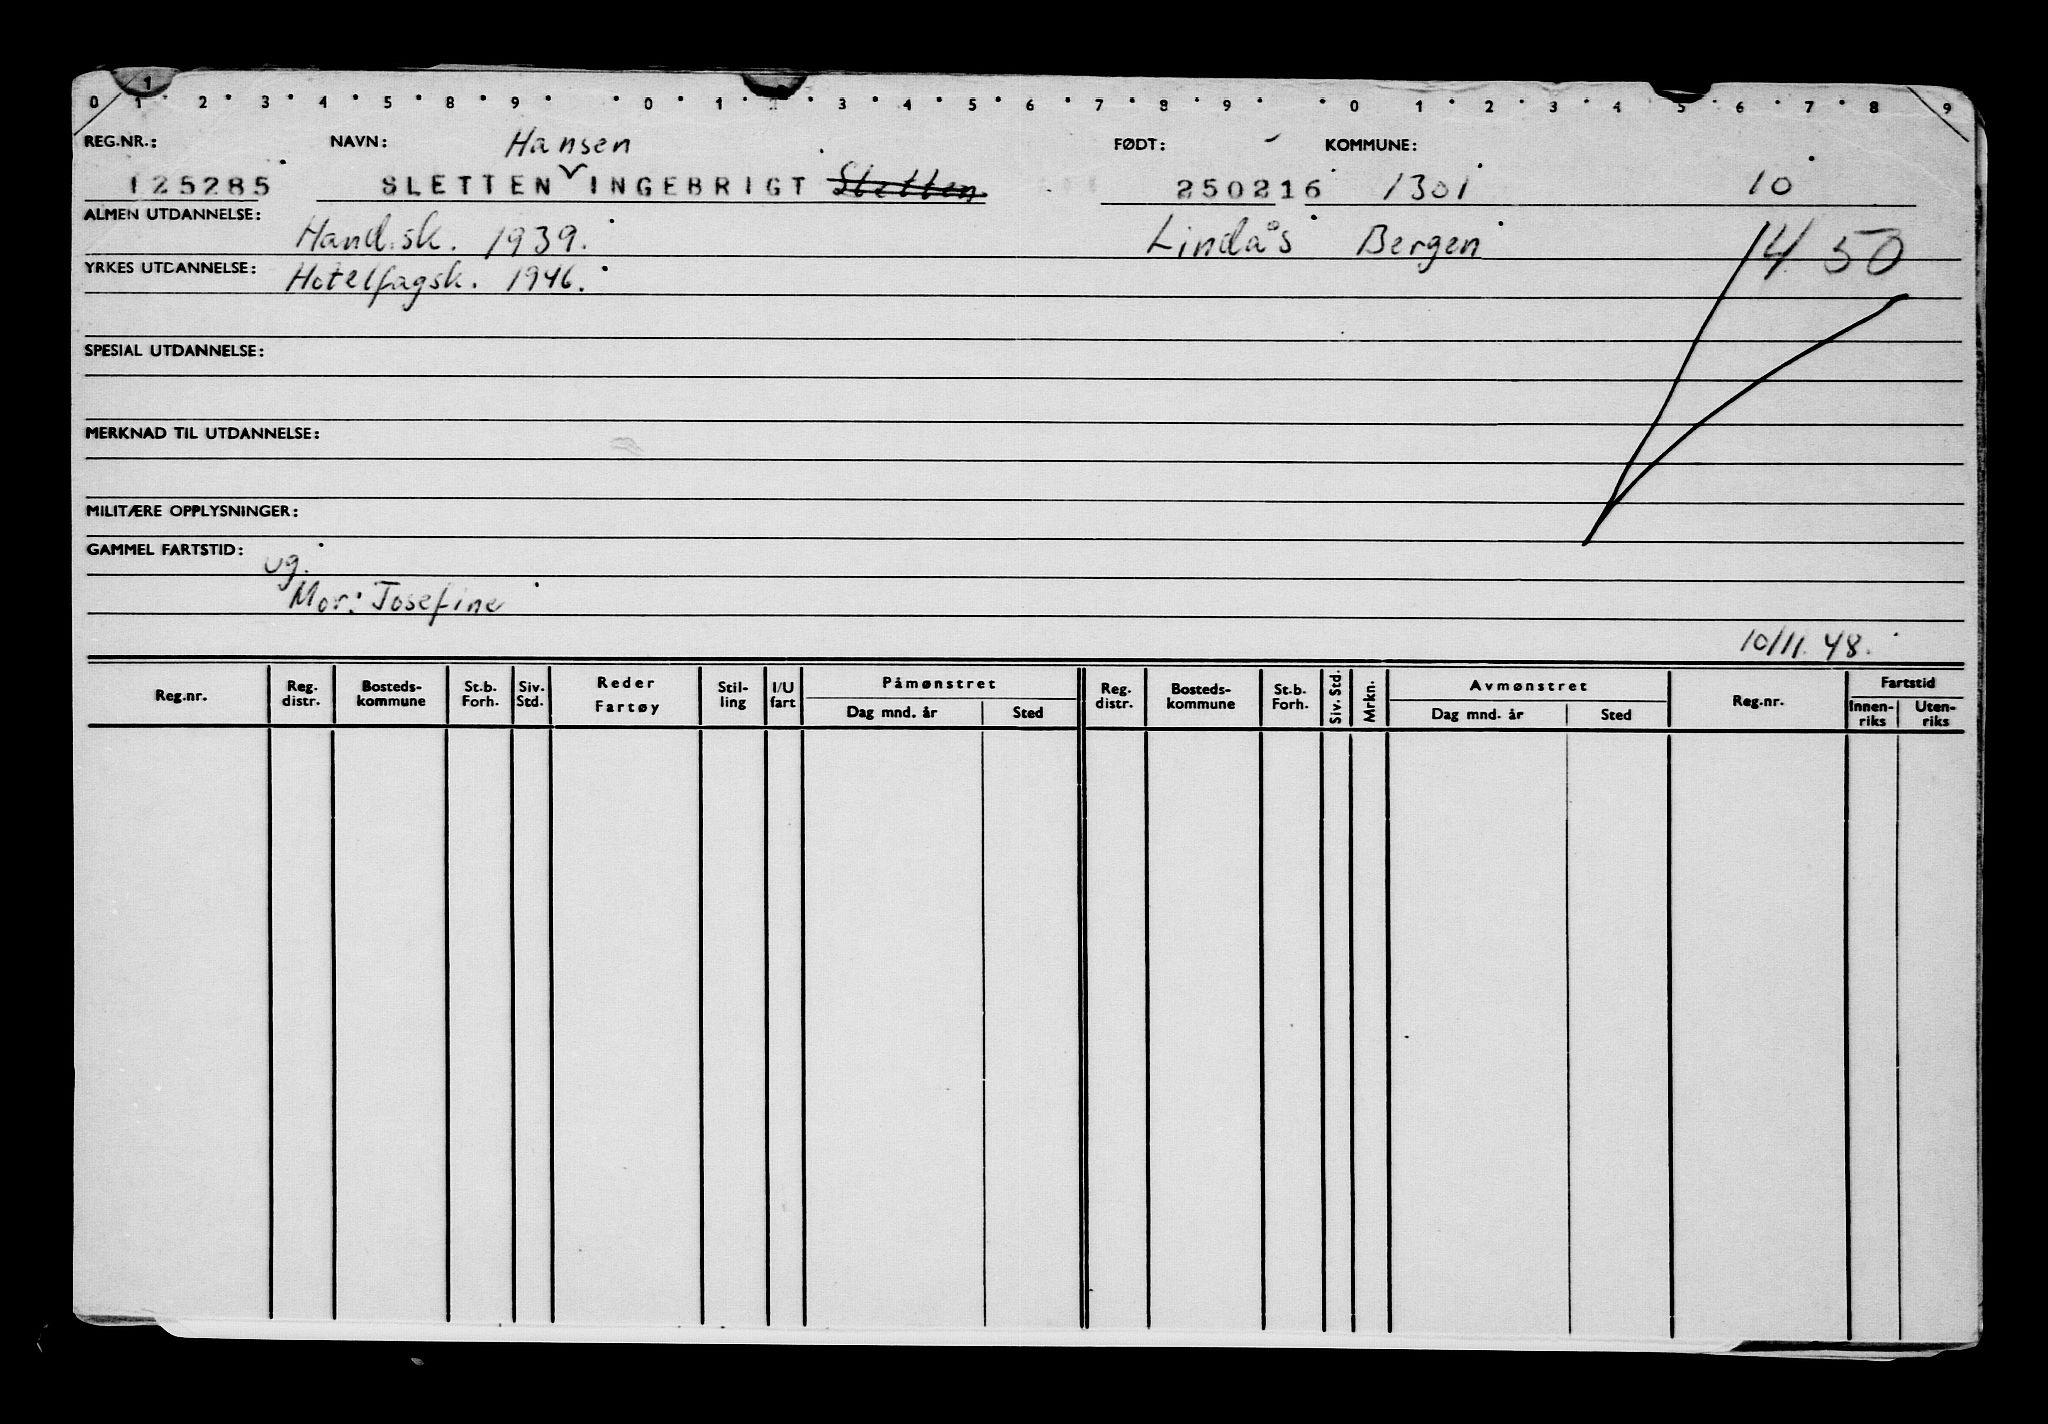 1
0 1 2 3 4 5 8 9 0 1 3 4 5 6 7 8 9 0 1 2 3 4 5 6 7 8 9
REG.NR.: NAVN: Hansen FØDT: KOMMUNE:
125285 SLETTEN INGEBRIGT Sletten 250216 1301 10
ALMEN UTDANNELSE: Hand.sk. 1939. Lindås Bergen 14 50
YRKES UTDANNELSE: Hotelfagsk. 1946.
SPESIAL UTDANNELSE:
MERKNAD TIL UTDANNELSE:
MILITÆRE OPPLYSNINGER:
GAMMEL FARTSTID: ug.
Mor: Josefine
10/11. 48.
Reg.nr. Reg. distr. Bosteds- kommune St.b. Forh. Siv. Std. Reder Fartøy Stil- ling I/U fart Påmønstret Dag mnd. år Sted Reg. distr. Bosteds- kommune St.b. Forh. Siv. Std. Mrkn. Avmønstret Dag mnd. år Sted Reg.nr. Fartstid Innen- riks Uten- riks